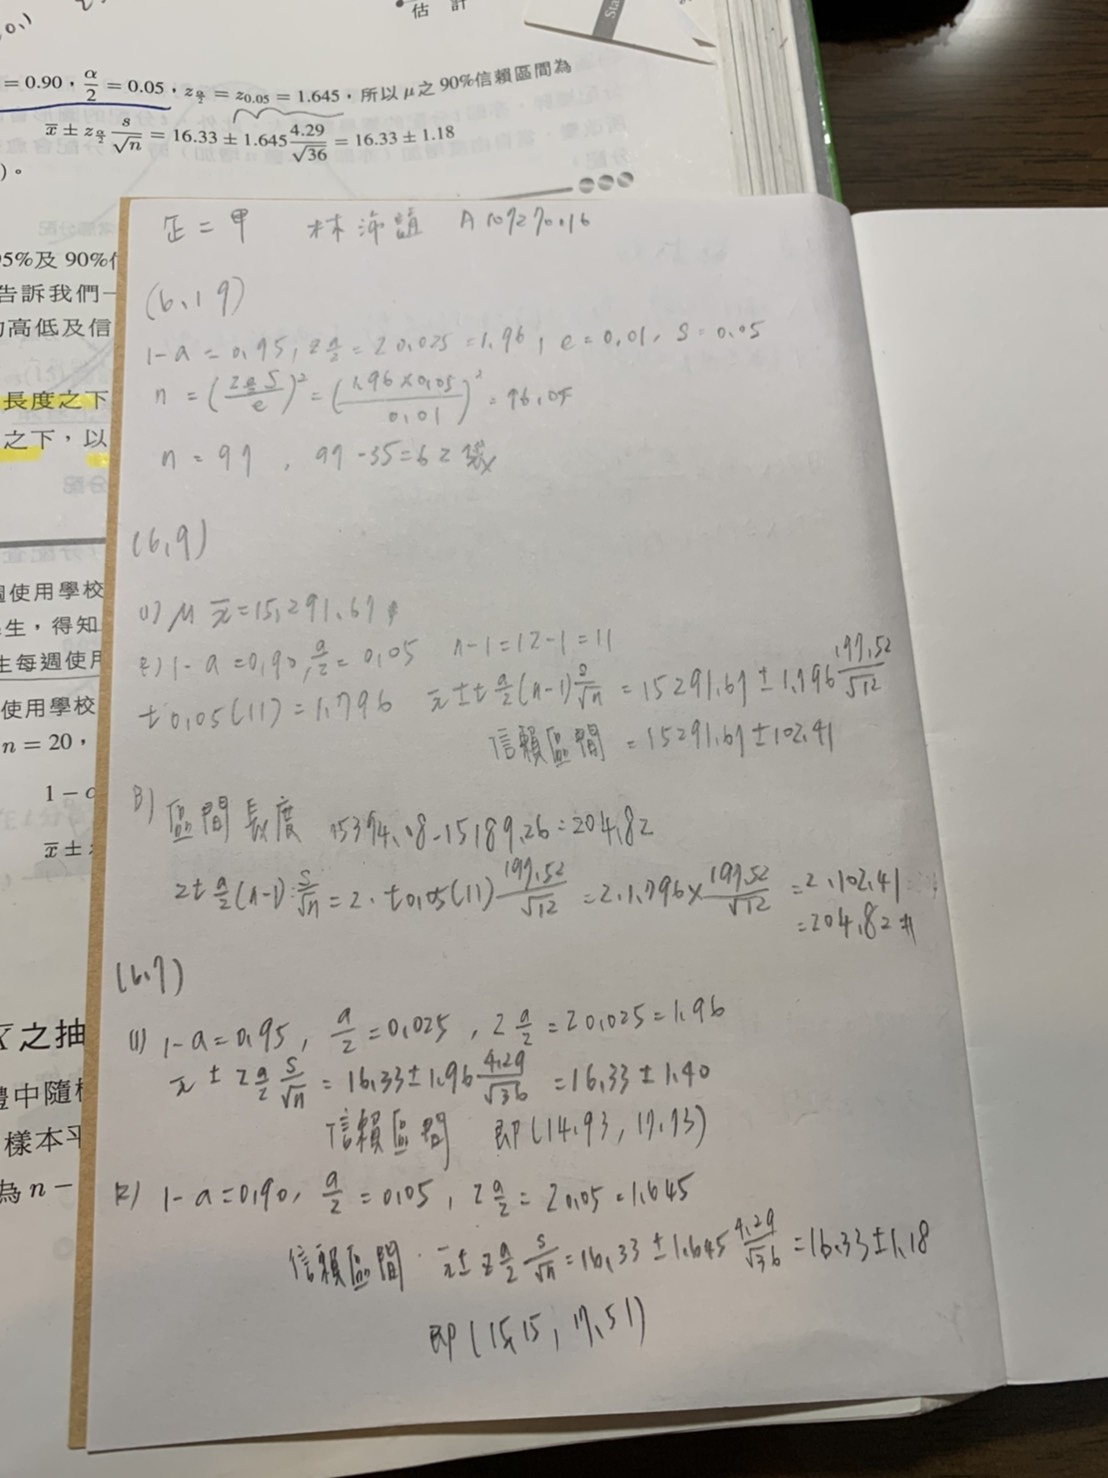 估 計
= 0.90，α/2 = 0.05，z_α/2 = z_0.05 = 1.645，所以 μ 之 90%信賴區間為
x̄ ± z_α/2 s/√n = 16.33 ± 1.645 4.29/√36 = 16.33 ± 1.18
)。
95%及 90%
告訴我們一
高低及信
長度之下
之下，以
週使用學校
生，得知
生每週使用
使用學校
n = 20，
1 − α
x̄ ±
X̄ 之抽
體中隨機
樣本平
為 n −
正二甲 林沛誼 A10727016
(6.19)
1-α=0.95, z α/2 = z0.025=1.96, e=0.01, S=0.05
n = (z α/2 S/e)² = (1.96×0.05/0.01)² = 96.04
n = 97 , 97-35=62袋
(6.9)
(1) μ x̄=15,291.67 #
(2) 1-α=0.90, α/2=0.05 n-1=12-1=11
t0.05(11)=1.796 x̄ ± t α/2 (n-1) s/√n = 15291.67 ± 1.796 197.52/√12
信賴區間 = 15291.67 ± 102.41
(3) 區間長度 15394.08-15189.26=204.82
2t α/2 (n-1)·s/√n = 2·t0.05(11) 197.52/√12 = 2·1.796× 197.52/√12 = 2·102.41
=204.82 #
(6.7)
(1) 1-α=0.95, α/2=0.025, z α/2 = z0.025=1.96
x̄ ± z α/2 s/√n = 16.33 ± 1.96 4.29/√36 = 16.33 ± 1.40
信賴區間 即(14.93, 17.73)
(2) 1-α=0.90, α/2=0.05, z α/2 = z0.05=1.645
信賴區間 x̄ ± z α/2 s/√n = 16.33 ± 1.645 4.29/√36 = 16.33 ± 1.18
即(15.15, 17.51)